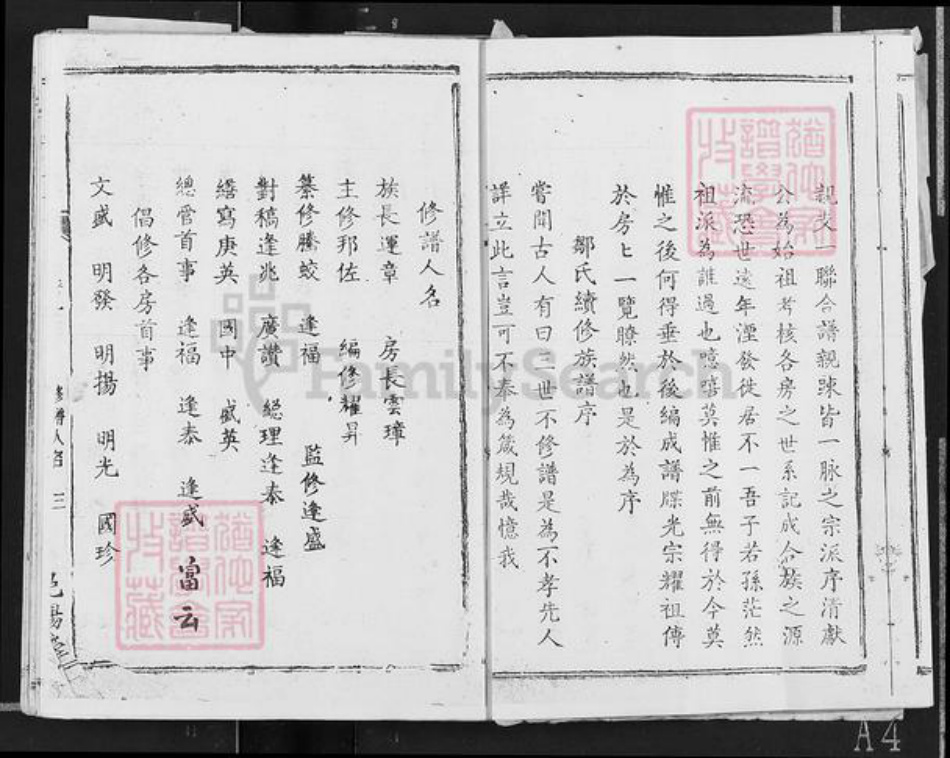 親支一聯合譜親疎皆一脉之宗派序清獻
公為始祖考核各房之世系記成合族之源
流恐世遠年湮發徙居不一吾子若孫茫然
祖派為誰過也嘻嘻莫惟之前無得於今莫
惟之後何得垂於後編成譜牒光宗耀祖傳
於房匕一覽瞭然也是於為序
鄒氏續修族譜序
嘗聞古人有曰三世不修譜是為不孝先人
詳立此言豈可不奉為箴規哉憶我
修譜人名
族長運章 房長雲璋
主修邦佐 編修耀昇
纂修騰蛟 逢福 監修逢盛
對稿逢兆 廣讚 總理逢泰 逢福
繕寫庚英 國中 盛英
總管首事 逢福 逢泰 逢盛 富云
倡修各房首事
文盛 明發 明揚 明光 國珍
修譜人名 三
FamilySearch
A4